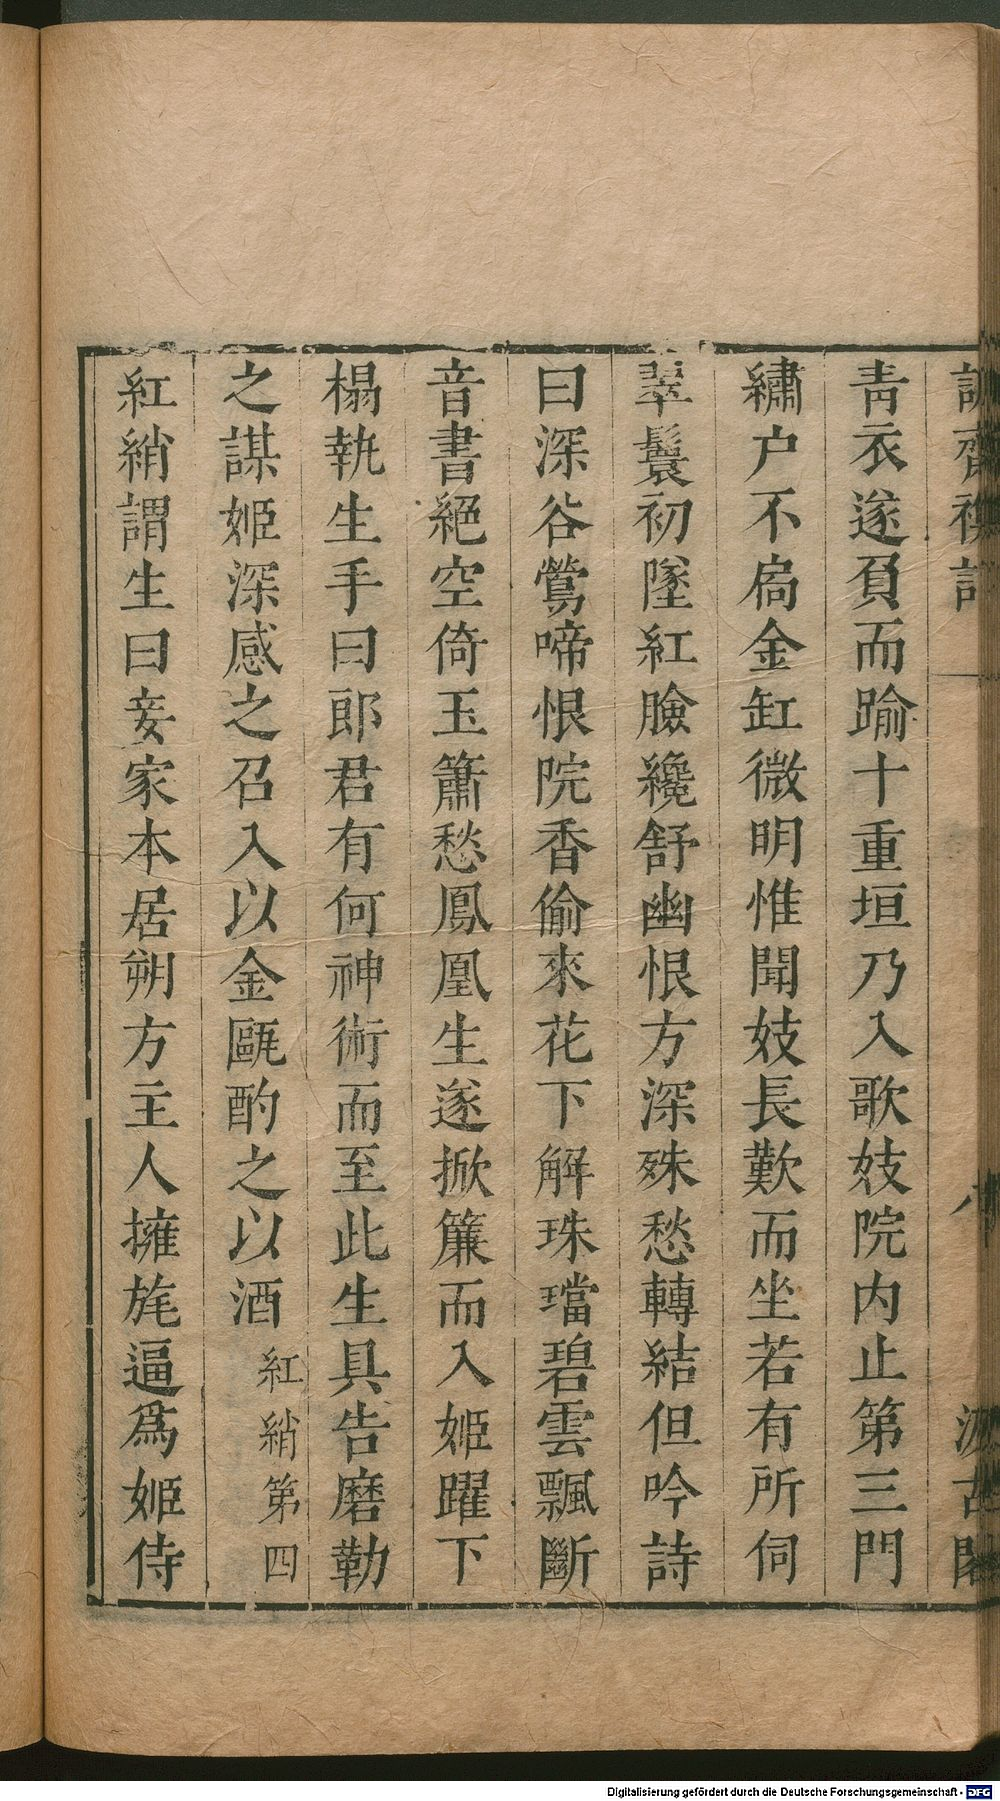 青衣遂負而踰十重垣乃入歌妓院内止第三門
繡户不扃金缸微明惟聞妓長歎而坐若有所伺
翠鬟初墜紅臉纔舒幽恨方深殊愁轉結但吟詩
曰深谷鶯啼恨院香偷來花下解珠璫碧雲飄斷
音書絕空倚玉簫愁鳳凰生遂掀簾而入姬躍下
榻執生手曰郎君有何神術而至此生具告磨勒
之謀姬深感之召入以金甌酌之以酒紅綃第四
紅綃謂生曰妾家本居朔方主人擁旄逼爲姬侍
Digitalisierung gefördert durch die Deutsche Forschungsgemeinschaft - DFG